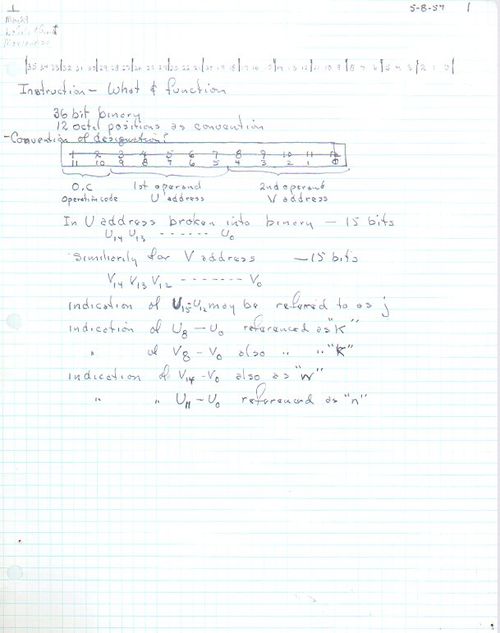 1
5-8-57 1
35 34 33 32 31 30 29 28 27 26 25 24 23 22 21 20 19 18 17 16 15 14 13 12 11 10 9 8 7 6 5 4 3 2 1 0
Instruction - What & function
36 bit binary
12 octal positions as convention
- Convention of designation:
1 2 3 4 5 6 7 8 9 10 11 12
11 10 9 8 7 6 5 4 3 2 1 0
O.C 1st operand 2nd operand
Operation code U address V address
In U address broken into binary - 15 bits
U14 U13 ------ U0
Similiarily for V address - 15 bits
V14 V13 V12 ------- V0
indication of U15-U12 may be referred to as j
indication of U8 - U0 referenced as "K"
" of V8 - V0 also " " "K"
indication of V14 - V0 also as "w"
" " U11 - U0 referenced as "n"